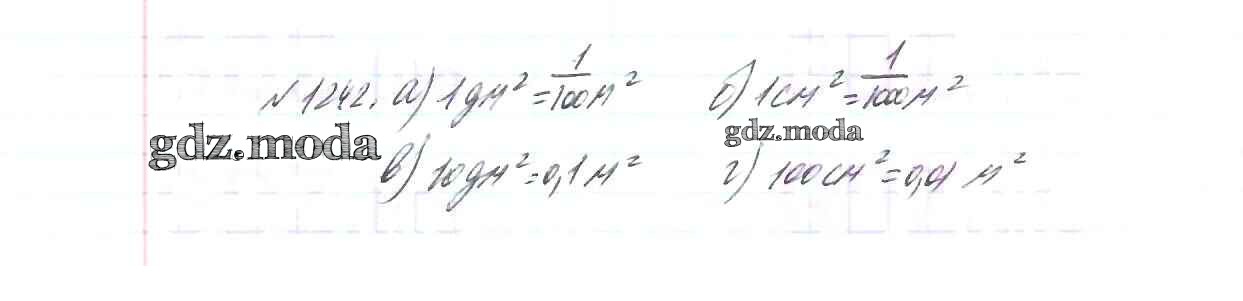 №1242. а) 1дм² = 1/100 м² б) 1см² = 1/1000 м²
gdz.moda gdz.moda
в) 10дм² = 0,1м² г) 100см² = 0,01 м²